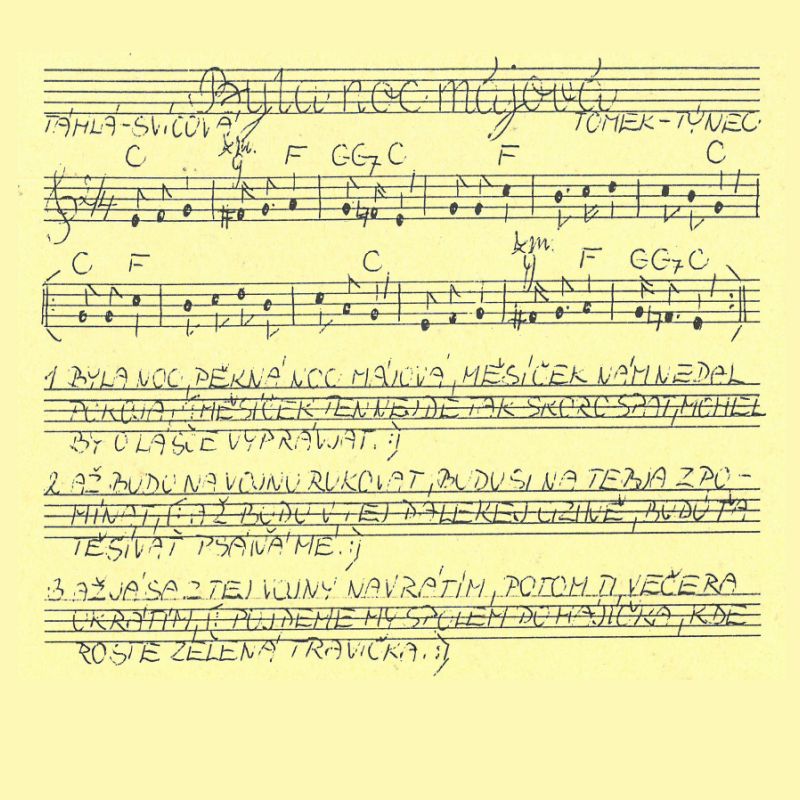 Byla noc májová
TÁHLÁ-SVÍCOVÁ TOMEK-TÝNEC
C F G G7 C F C
2/4
C F C F G G7 C
1 BYLA NOC, PĚKNÁ NOC MÁJOVÁ, MĚSÍČEK NÁM NEDAL
POKOJA, /: MĚSÍČEK TEN NEJDE TAK SKORO SPAT, MOHEL
BY O LÁSCE VYPRÁVJAT. :/
2 AŽ BUDU NA VOJNU RUKOVAT, BUDU SI NA TEBJA ZPO-
MÍNAT, /: AŽ BUDU V TEJ DALEKEJ CIZINĚ, BUDÚ ŤA
TĚŠÍVAŤ PSÁŇÁ MÉ. :/
3 AŽ JÁ SA Z TEJ VOJNY NAVRÁTÍM, POTOM TI VEČERA
UKRÁTÍM, /: PUJDEME MY SPOLEM DO HÁJÍČKA, KDE
ROSTE ZELENÁ TRAVIČKA. :/